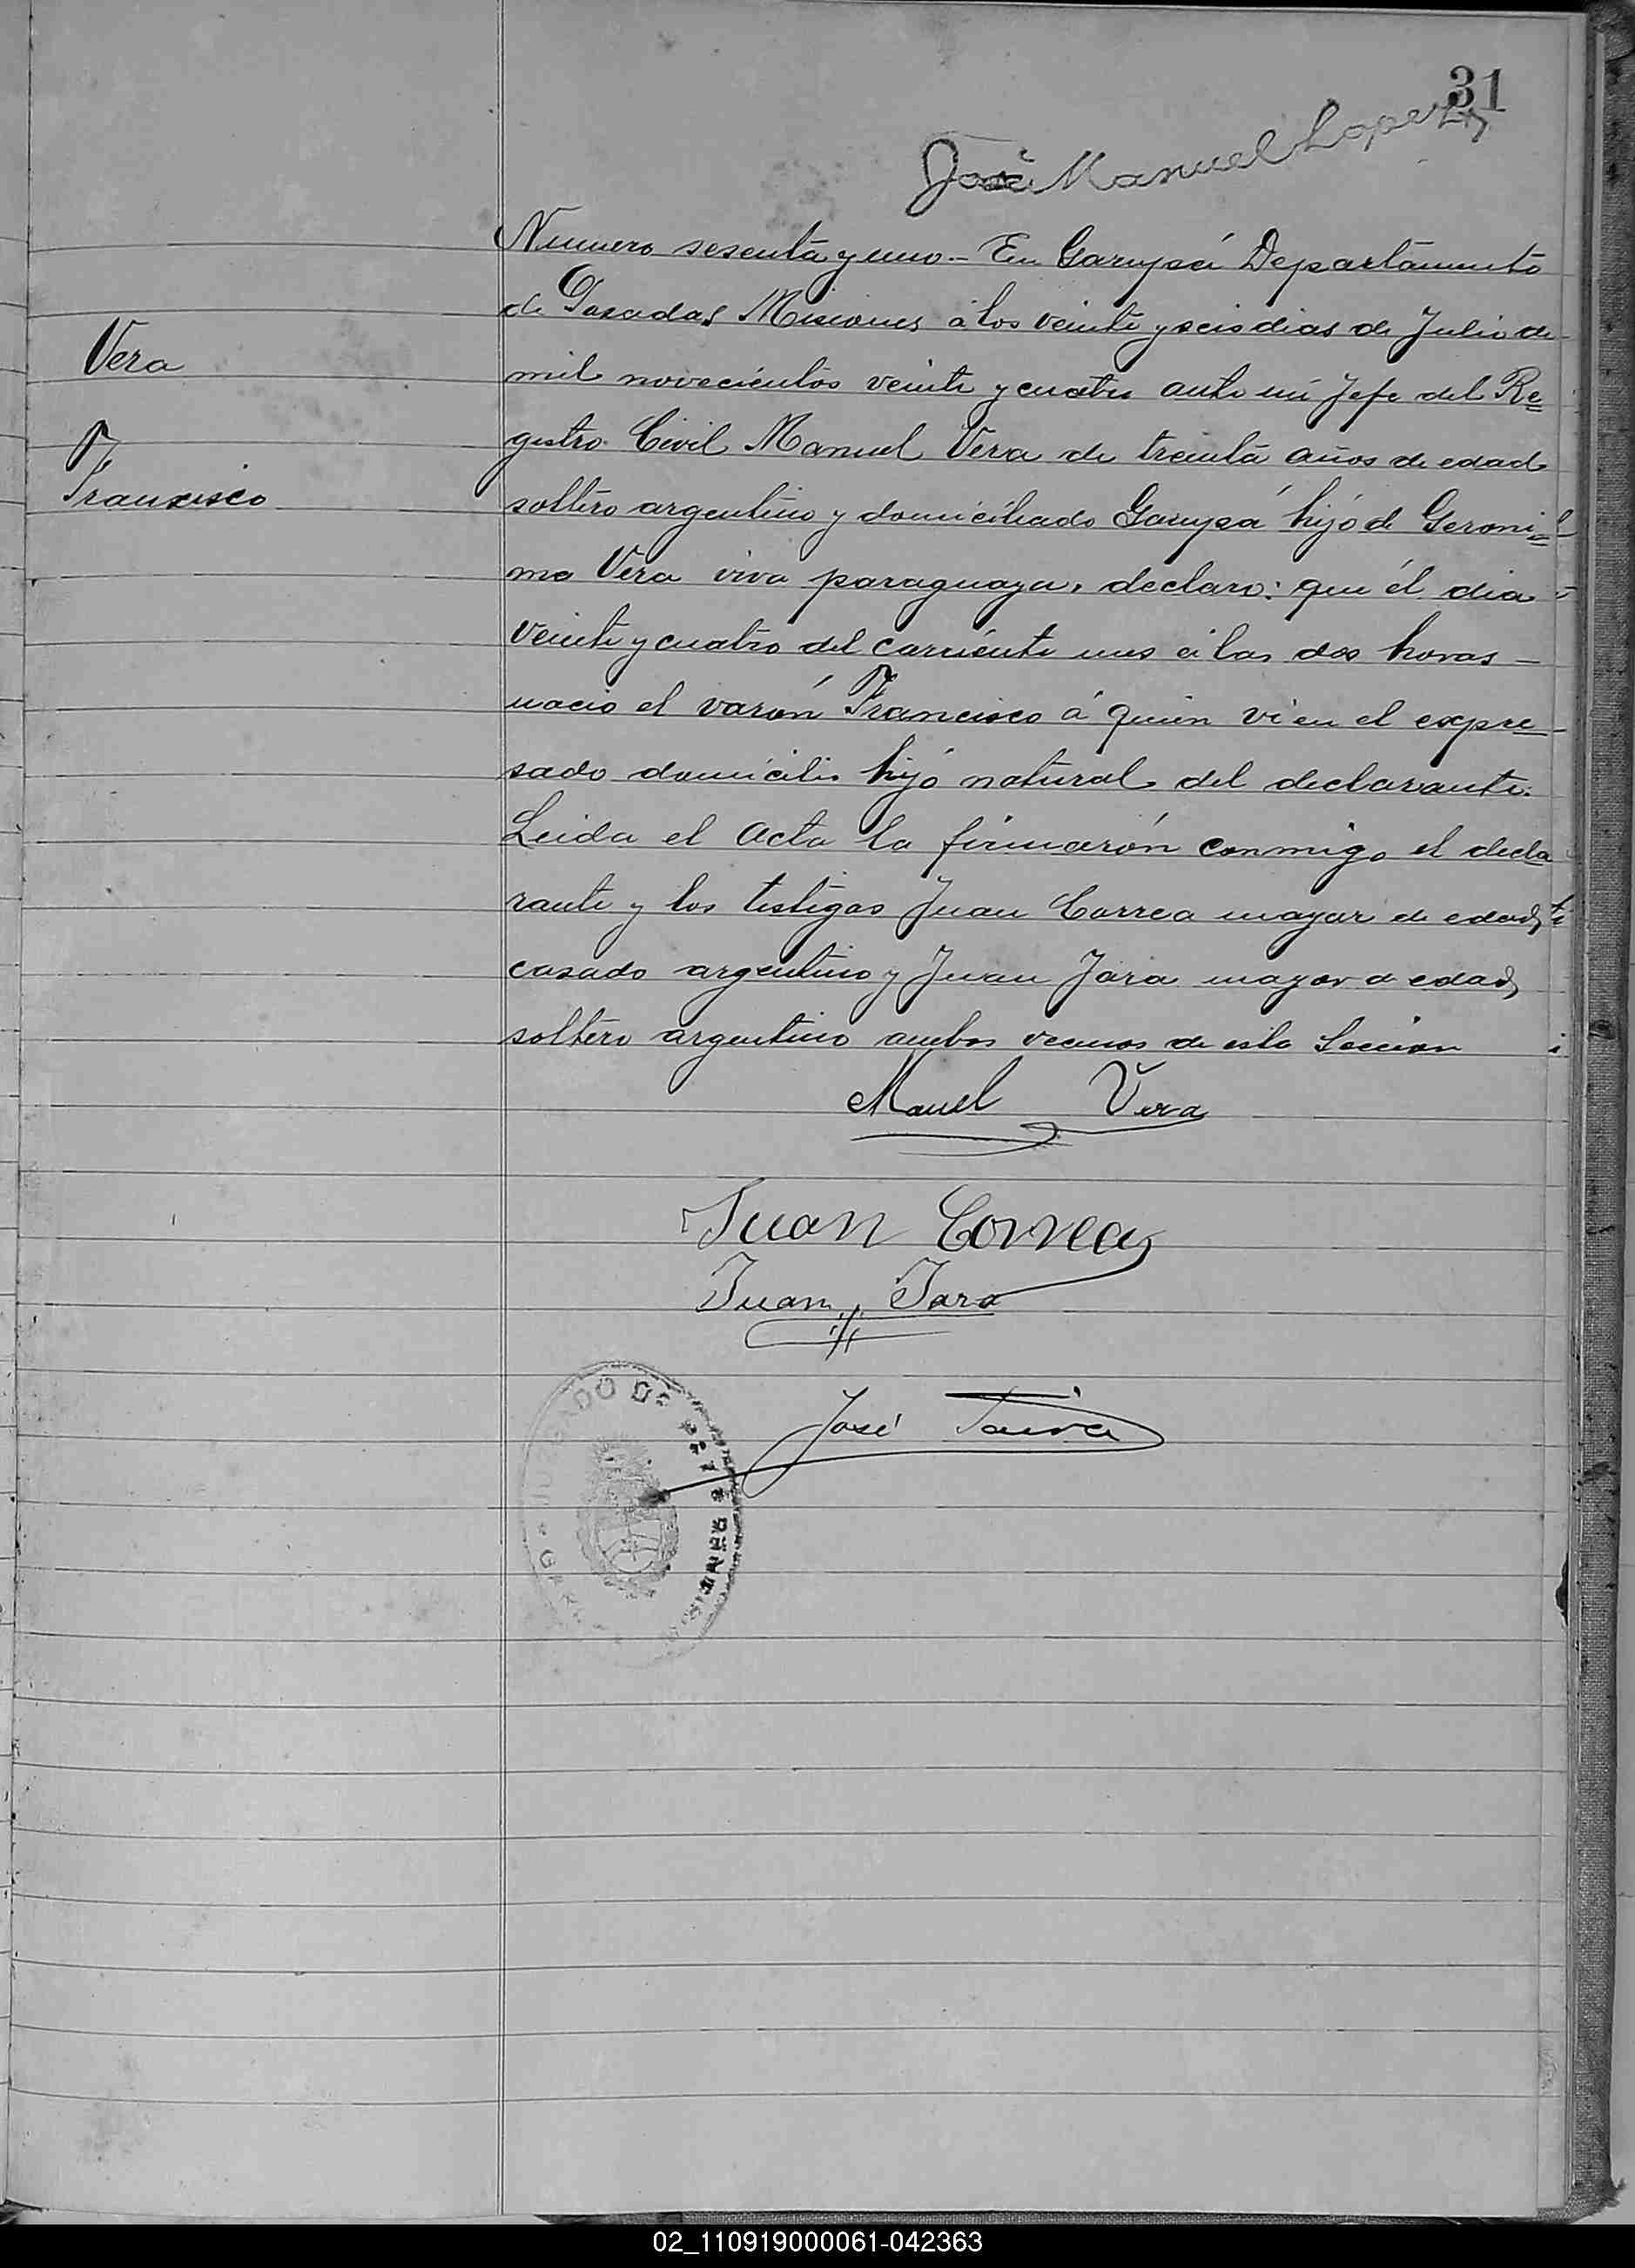 31
José Manuel Lopez
Numero sesenta y uno.- En Garupá Departamento
de Posadas Misiones á los veinte y seis dias de Julio de
Vera
mil novecientos veinte y cuatro ante mi Jefe del Re=
Francisco
gistro Civil Manuel Vera de treinta años de edad
soltero argentino y domiciliado Garupá hijo de Geroni=
ma Vera viva paraguaya, declaro: que él dia
veinte y cuatro del corriente mes á las dos horas –
nació el varón Francisco á quien vi en el expre-
sado domicilio hijó natural del declarante.
Leida el acta la firmarón conmigo el decla
rante y los testigos Juan Correa mayor de edad,
casado argentino y Juan Jara mayor d edad,
soltero argentino ambos vecinos de esta Seccion
Manuel Vera
Juan Correa
Juan Jara
José
JUZGADO DE PAZ
GARU
MISIONES
02_110919000061-042363